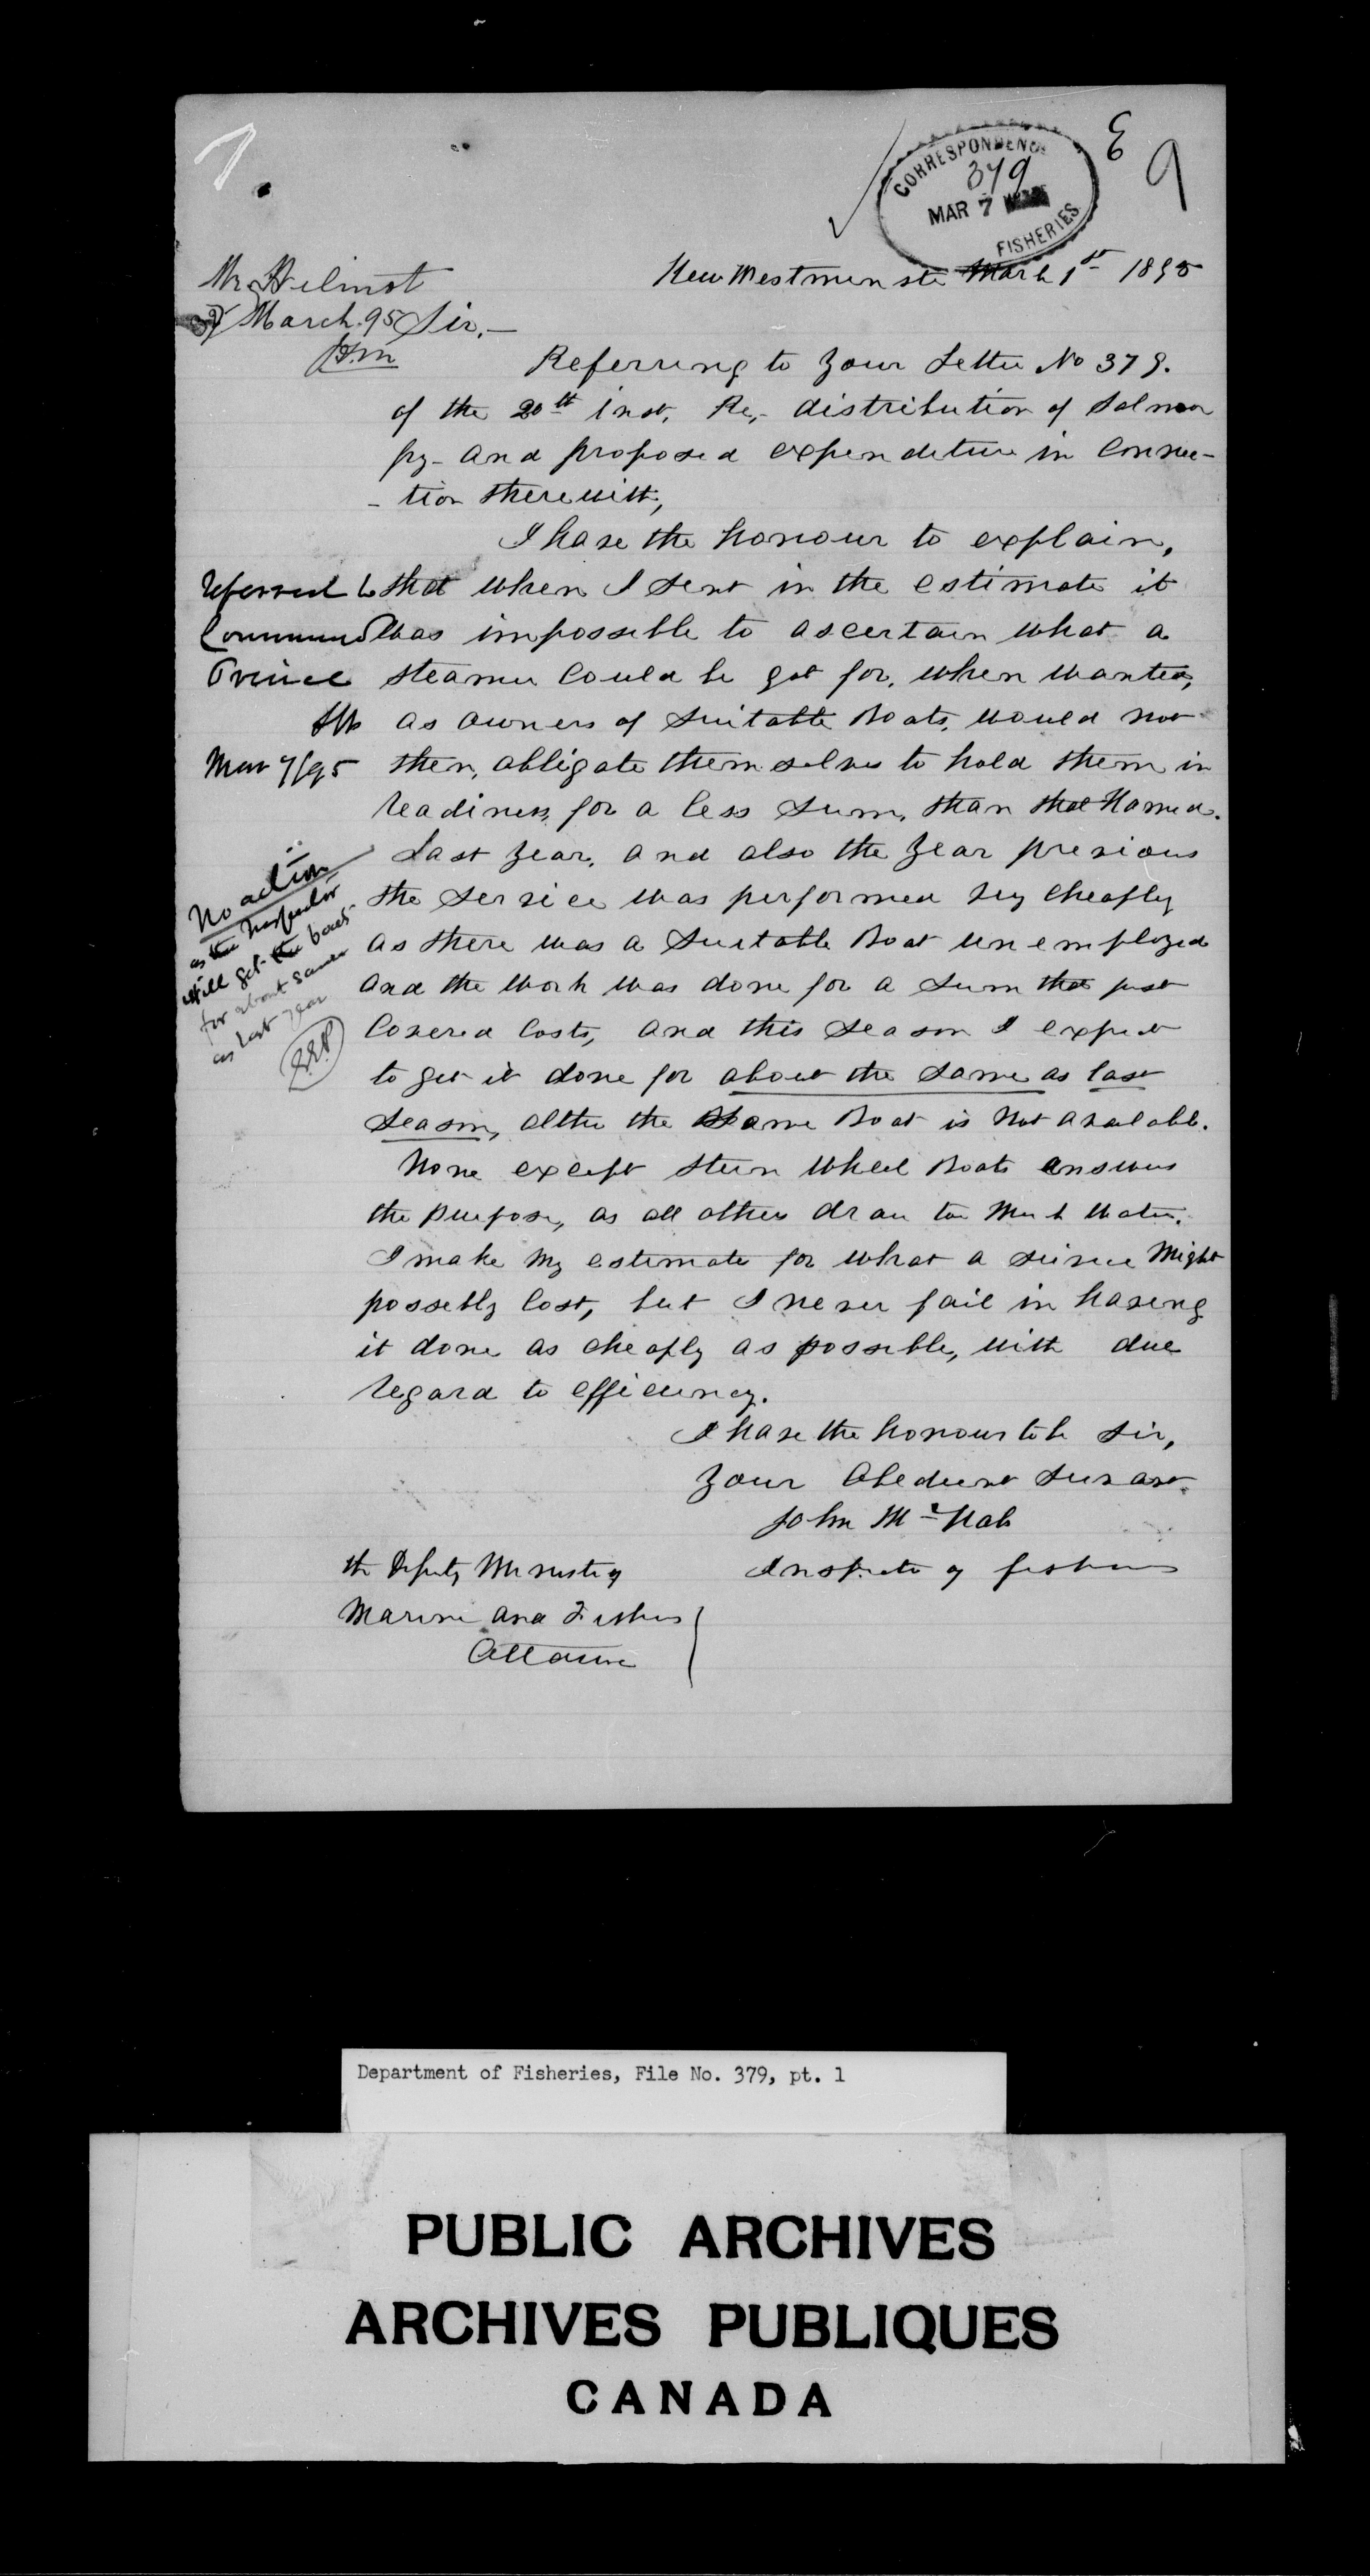 CORRESPONDENCE
379
MAR 7
FISHERIES
9
New Westminster March 1st 1895
Mr Wilmot
March 95
Sir,—
Referring to your Letter No 379.
of the 20th inst, Re,- distribution of Salmon
fry - and proposed expenditure in connec-
-tion therewith,
I have the honour to explain,
that when I sent in the estimate it
was impossible to ascertain what a
steamer could be got for, when wanted,
as owners of suitable Boats, would not
then, obligate themselves to hold them in
readiness, for a less sum, than that named.
Last year, and also the year previous
the service was performed very cheaply
as there was a suitable Boat unemployed
and the work was done for a sum that just
covered costs, and this season I expect
to get it done for about the same as last
season, altho the same Boat is not available.
None except stern wheel Boats answers
the purpose, as all others draw too much water.
I make my estimate for what a service might
possibly cost, but I never fail in having
it done as cheaply as possible, with due
regard to efficiency.
I have the honour to be Sir,
Your Obedient Servant.
John McNab
Inspector of fisheries
the Deputy Minister of
Marine and Fisheries
Ottawa
Referred to
Commander
Prince
Mar 7/95
No action
as the Inspector
will get the boat
for about same
as last year
Department of Fisheries, File No. 379, pt. 1
PUBLIC ARCHIVES
ARCHIVES PUBLIQUES
CANADA